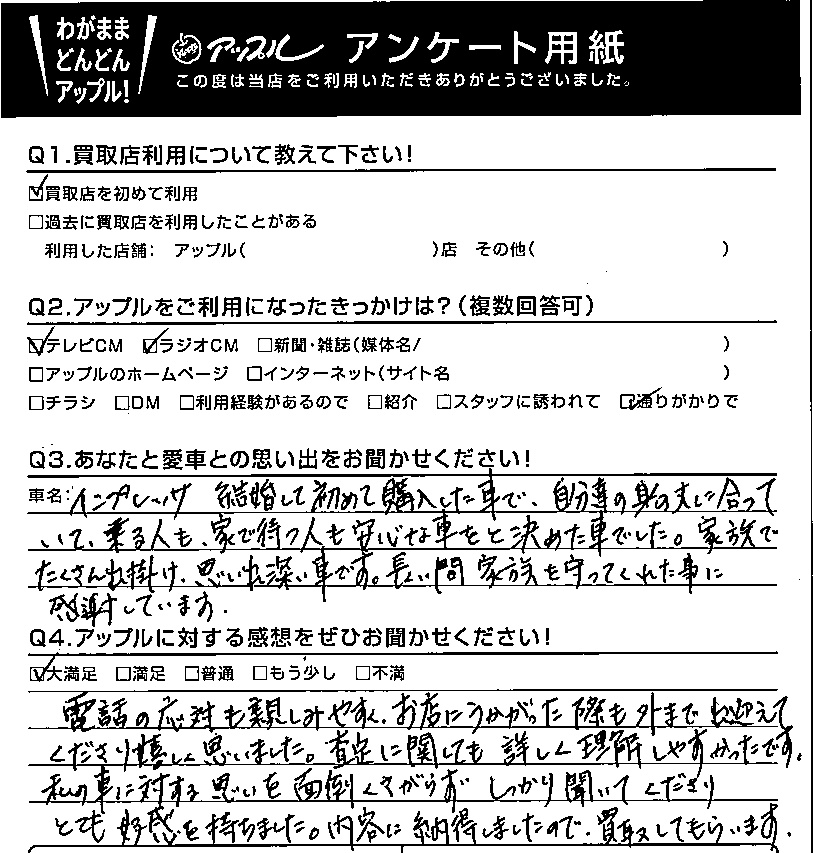 わがまま
どんどん
アップル!
アップル アンケート用紙
この度は当店をご利用いただきありがとうございました。
Q1.買取店利用について教えて下さい!
☑買取店を初めて利用
□過去に買取店を利用したことがある
利用した店舗: アップル( )店 その他( )
Q2.アップルをご利用になったきっかけは?(複数回答可)
☑テレビCM ☑ラジオCM □新聞・雑誌(媒体名/ )
□アップルのホームページ □インターネット(サイト名 )
□チラシ □DM □利用経験があるので □紹介 □スタッフに誘われて ☑通りがかりで
Q3.あなたと愛車との思い出をお聞かせください!
車名:インプレッサ 結婚して初めて購入した車で、自分達の身の丈に合って
いて、乗る人も、家で待つ人も安心な車をと決めた車でした。家族で
たくさん出掛け、思い入れ深い車です。長い間 家族を守ってくれた事に
感謝しています。
Q4.アップルに対する感想をぜひお聞かせください!
☑大満足 □満足 □普通 □もう少し □不満
電話の応対も親しみやすく、お店にうかがった際も外まで出迎えて
くださり嬉しく思いました。査定に関しても 詳しく理解しやすかったです。
私の車に対する思いを面倒くさがらず しっかり聞いてくださり
とても 好感を持ちました。内容に納得しましたので、買取してもらいます。